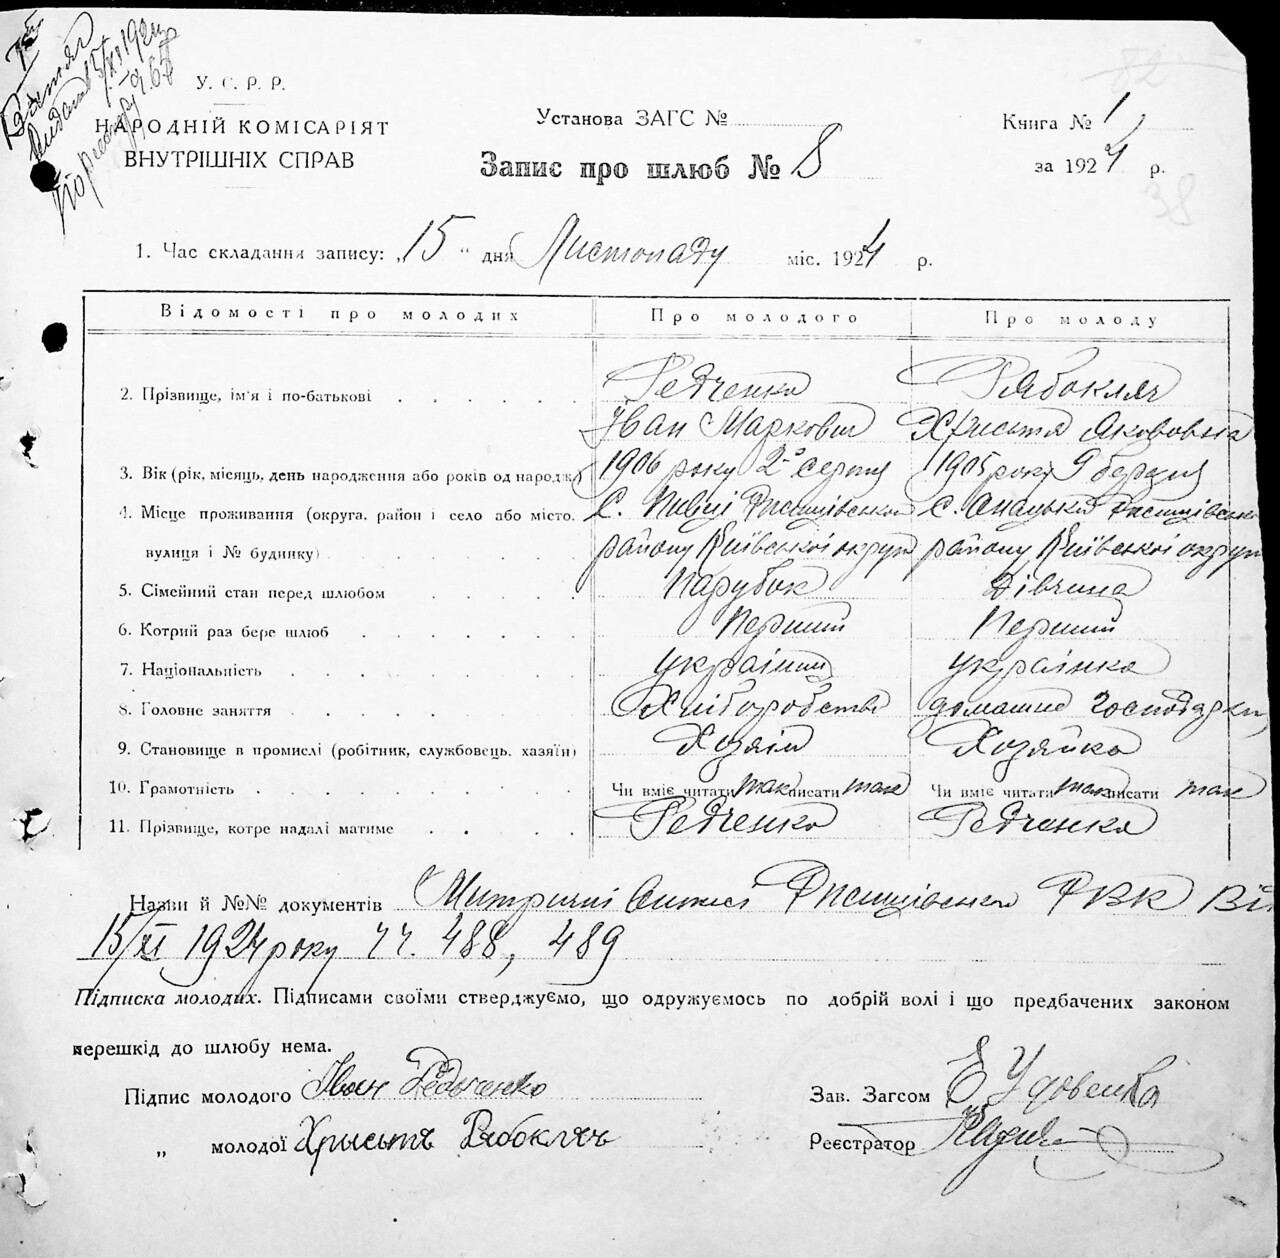 У. С. Р. Р.
НАРОДНІЙ КОМІСАРІЯТ
ВНУТРІШНІХ СПРАВ
Установа ЗАГС №
Запис про шлюб № 8
Книга № 1
за 1924 р.
38
82
1. Час складання запису: „15" дня Листопаду міс. 1924 р.
Відомості про молодих Про молодого Про молоду
2. Прізвище, ім'я і по-батькові Редченко Рябокляч
Іван Маркович Христя Якововна
3. Вік (рік, місяць, день народження або років од народж.) 1906 року 2-го серпня 1905 року 9 березня
4. Місце проживання (округа, район і село або місто, С. Півці Ржищівського С. Ржищівського
вулиця і № будинку) району Київської округи району Київської округи
5. Сімейний стан перед шлюбом Парубок Дівчина
6. Котрий раз бере шлюб Перший Перший
7. Національність українець українка
8. Головне заняття Хліборобство домашнє господарки
9. Становище в промислі (робітник, службовець, хазяїн) Хозяїн Хозяйка
10. Грамотність Чи вміє читати так писати так Чи вміє читати так писати так
11. Прізвище, котре надалі матиме Редченко Редченко
Назви й №№ документів Метричні Витисі Ржищівського РВК Від
15/XI 1924 року чч. 488, 489
Підписка молодих. Підписами своїми стверджуємо, що одружуємось по добрій волі і що предбачених законом
перешкід до шлюбу нема.
Підпис молодого Іван Редченко
Зав. Загсом Е Удовенко
„ молодої Хрысть Рябокляч
Реєстратор